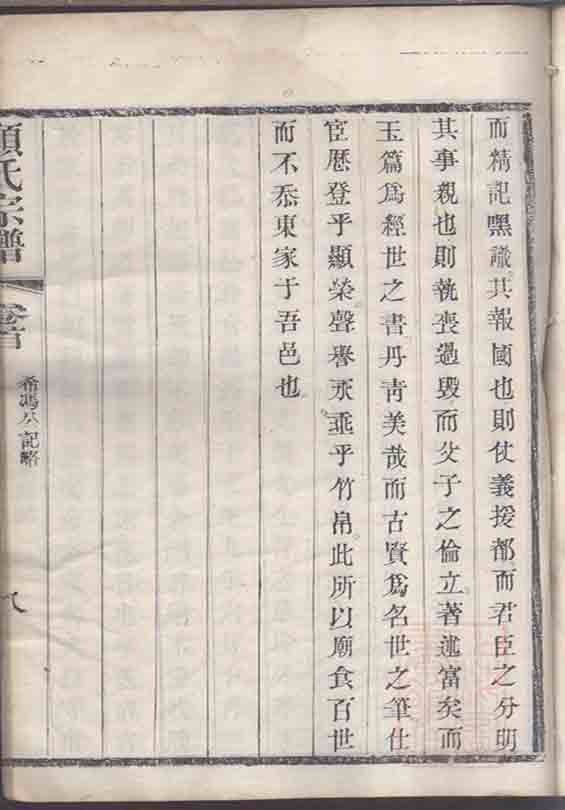 而精記嘿識其報國也則仗義援都而君臣之分明
其事親也則執喪過毀而父子之倫立著述富矣而
玉篇爲經世之書丹青美哉而古賢爲名世之筆仕
宦歷登乎顯榮聲譽永垂乎竹帛此所以廟食百世
而不忝東家于吾邑也
顧氏宗譜
卷首
希馮公記略
八